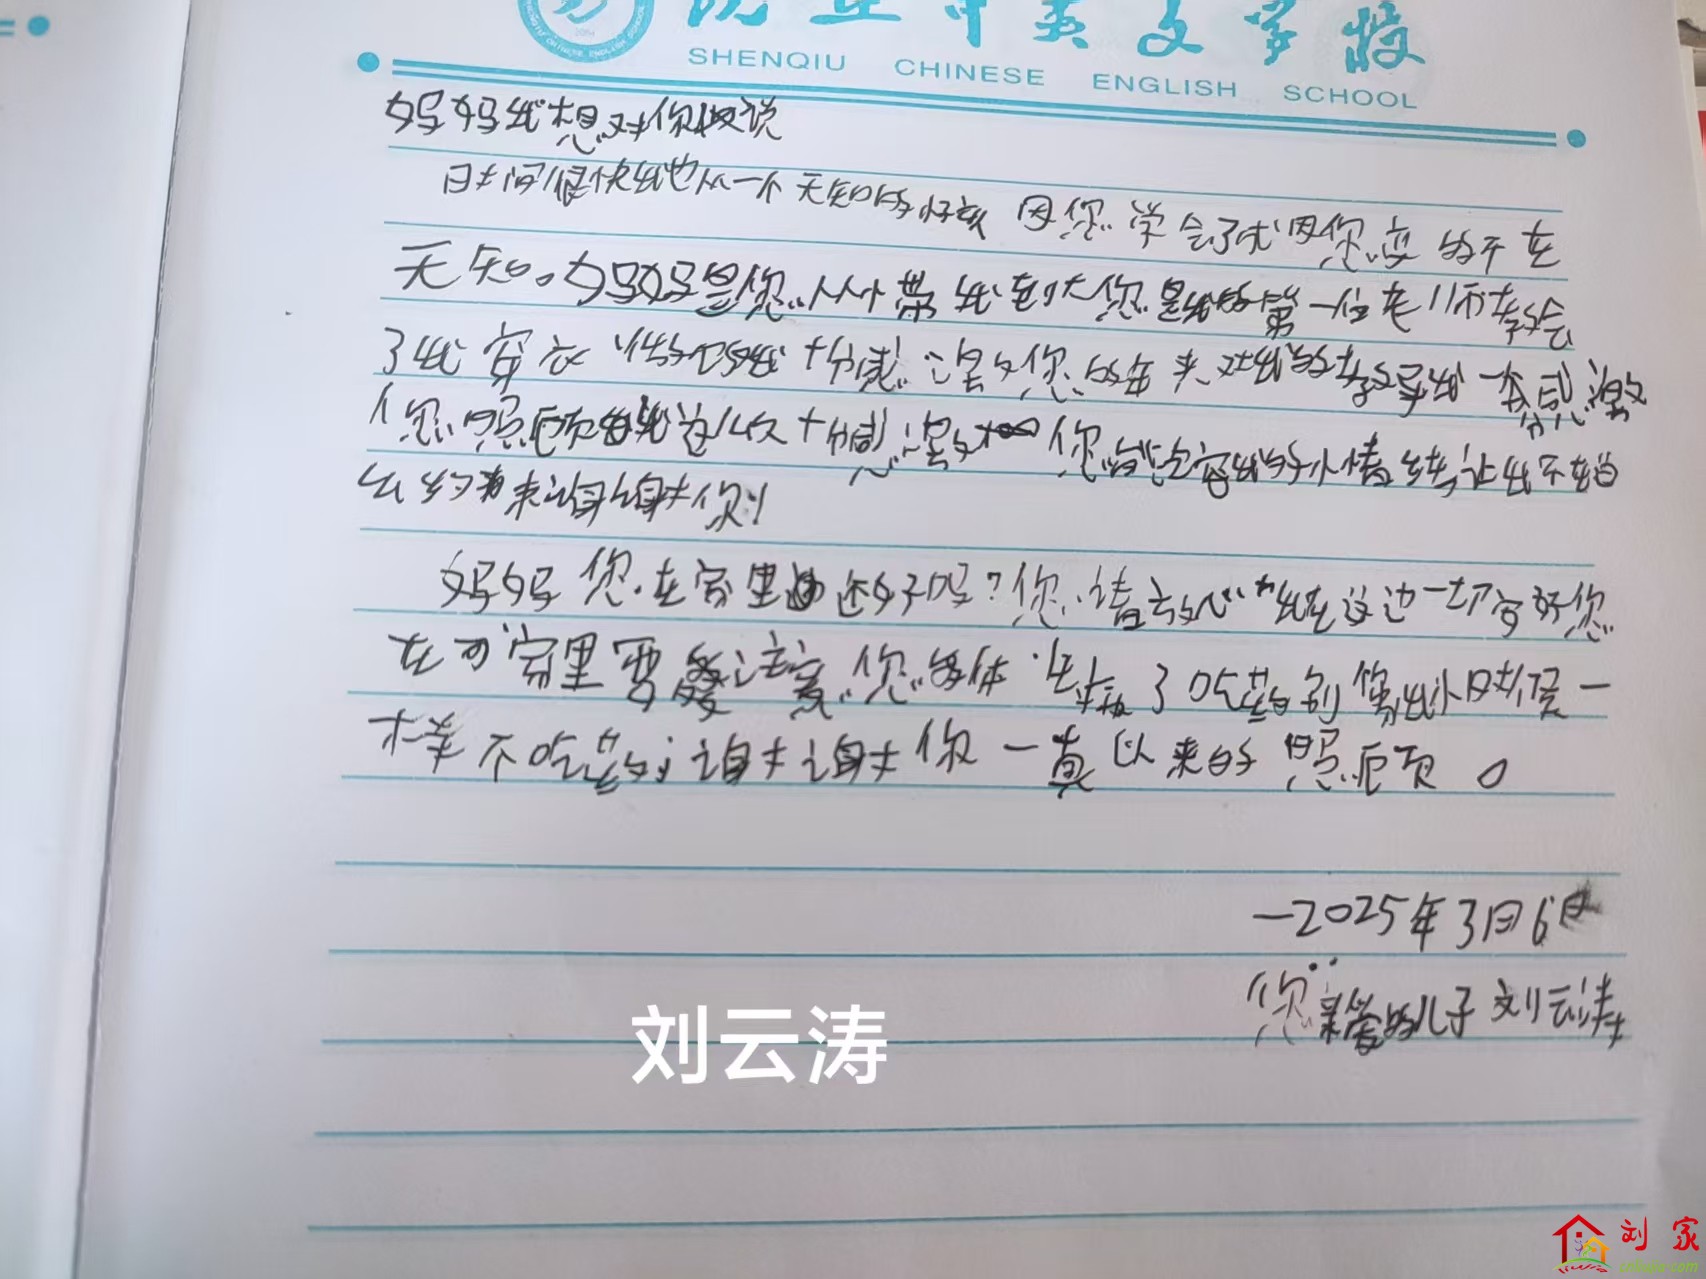 沈丘中英文学校
SHENQIU CHINESE ENGLISH SCHOOL
妈妈我想对你说
时间很快我也从一个无知的小孩 因您学会了 因您变的不在
无知。妈妈是您从小带我到大您是我的第一位老师教会
了我穿衣 我十分感激您的 对我的教导我 感激
您照顾我这么久十分感激 您能包容我的小情绪让我不在
来谢谢你!
妈妈您在家里还好吗?您请放心我在这边一切安好您
在家里要多注意您身体 生病了吃药别像我小时候一
样不吃药 谢谢你一直以来的照顾。
一2025年3月6日
您亲爱的儿子刘云涛
刘云涛
刘家